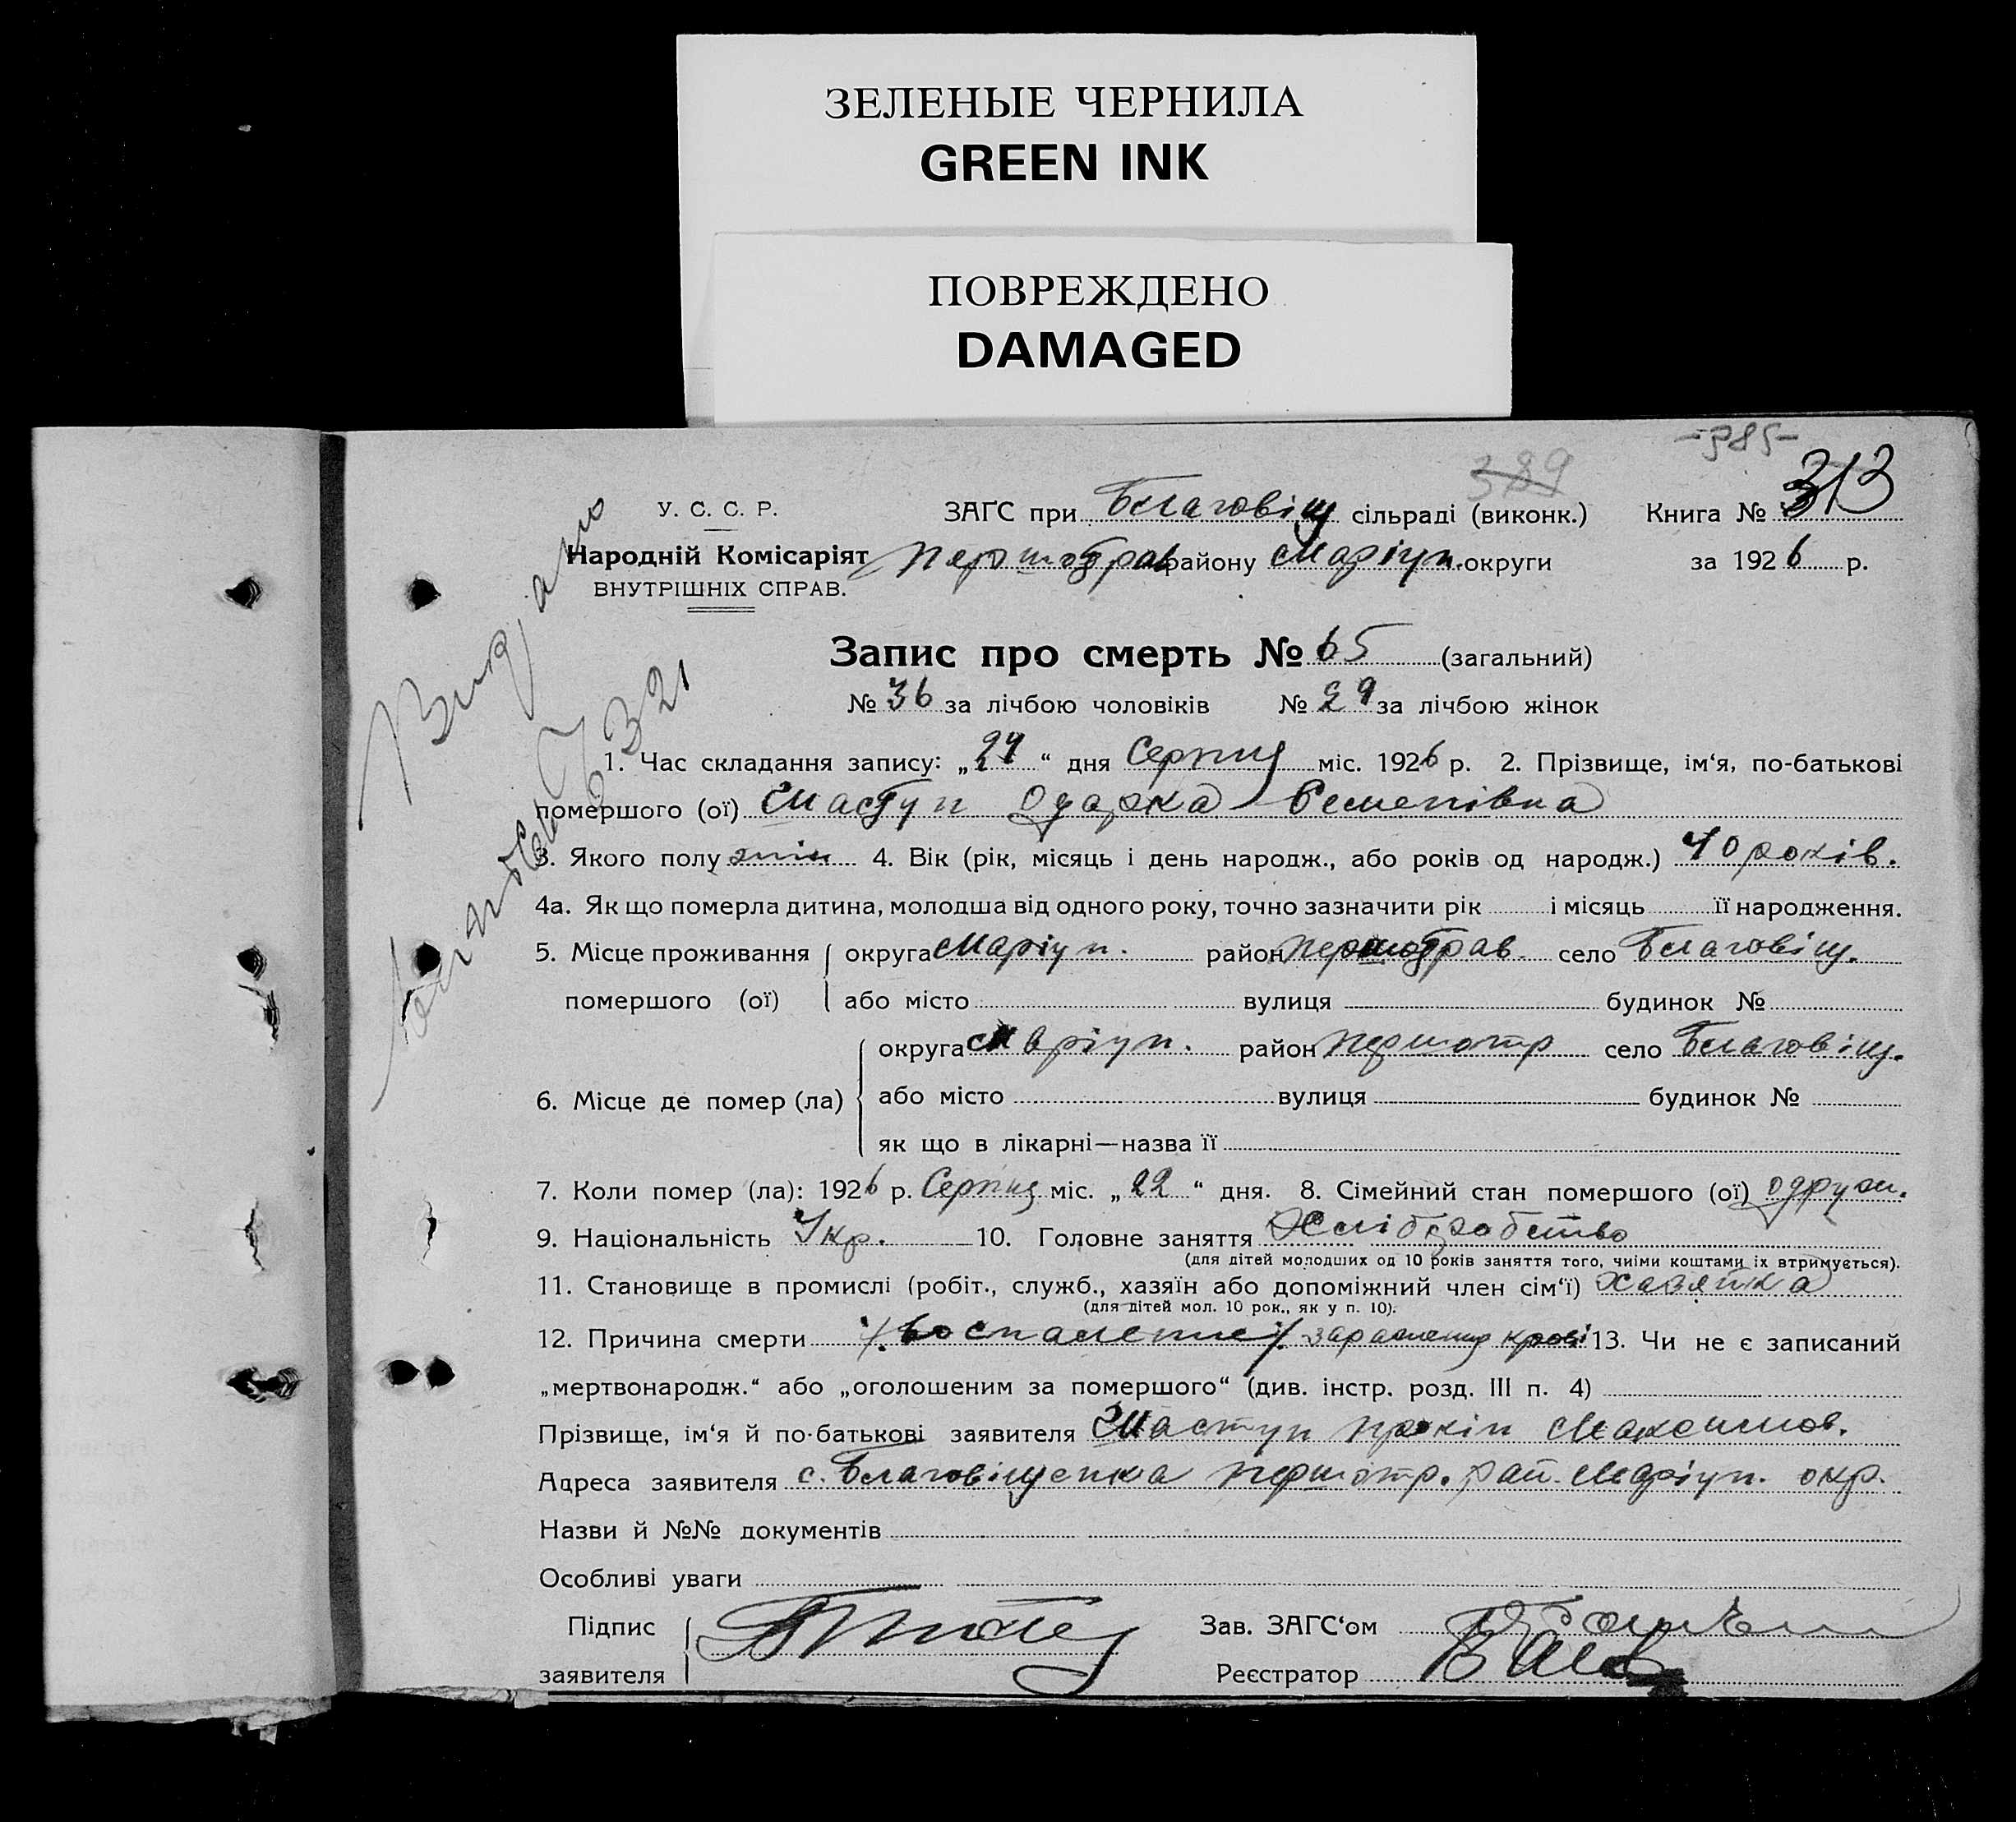 ЗЕЛЕНЫЕ ЧЕРНИЛА
GREEN INK
ПОВРЕЖДЕНО
DAMAGED
-985-
389
У. С. С. Р. ЗАГС при Благовіщ сільраді (виконк.) Книга № 313
Народній Комісаріят Першотрав району Маріуп. округи за 1926 р.
ВНУТРІШНІХ СПРАВ.
Видано
321
Запис про смерть № 65 (загальний)
№ 36 за лічбою чоловіків № 29 за лічбою жінок
1. Час складання запису: „24“ дня Серпня міс. 1926 р. 2. Прізвище, ім‘я, по-батькові
помершого (ої) Шастун Одарка Семенівна
3. Якого полу жін 4. Вік (рік, місяць і день народж., або років од народж.) 40 років.
4а. Як що померла дитина, молодша від одного року, точно зазначити рік і місяць її народження.
5. Місце проживання округа Маріуп. район Першотрав. село Благовіщ.
помершого (ої) або місто вулиця будинок №
округа Маріуп. район Першотр село Благовіщ.
6. Місце де помер (ла) або місто вулиця будинок №
як що в лікарні—назва її
7. Коли помер (ла): 1926 р. Серпня міс. „22“ дня. 8. Сімейний стан помершого (ої) одруж.
9. Національність Укр. 10. Головне заняття Хліборобство
(для дітей молодших од 10 років заняття того, чиїми коштами їх втримується).
11. Становище в промислі (робіт., служб., хазяїн або допоміжний член сім‘ї) хазяйка
(для дітей мол. 10 рок., як у п. 10).
12. Причина смерти /.Воспаление/. заражения крові 13. Чи не є записаний
„мертвонародж.“ або „оголошеним за помершого“ (див. інстр. розд. III п. 4)
Прізвище, ім‘я й по-батькові заявителя Шастун Прокіп Максимов.
Адреса заявителя с. Благовіщенка Першотр. рай. Маріуп. окр.
Назви й №№ документів
Особливі уваги
Підпис Зав. ЗАГС‘ом
заявителя Реєстратор